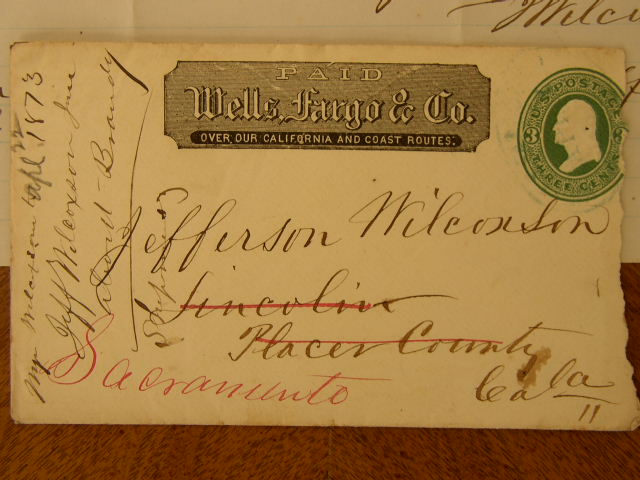 Wilco
PAID
Wells, Fargo & Co.
OVER OUR CALIFORNIA AND COAST ROUTES.
U.S. POSTAGE
3 3
THREE CENTS
Jefferson Wilcoxson
Lincoln
Placer County
Cala
11
Sacramento
Wilcoxson Apl 22 1873
Jeff Wilcoxson
about Brandy